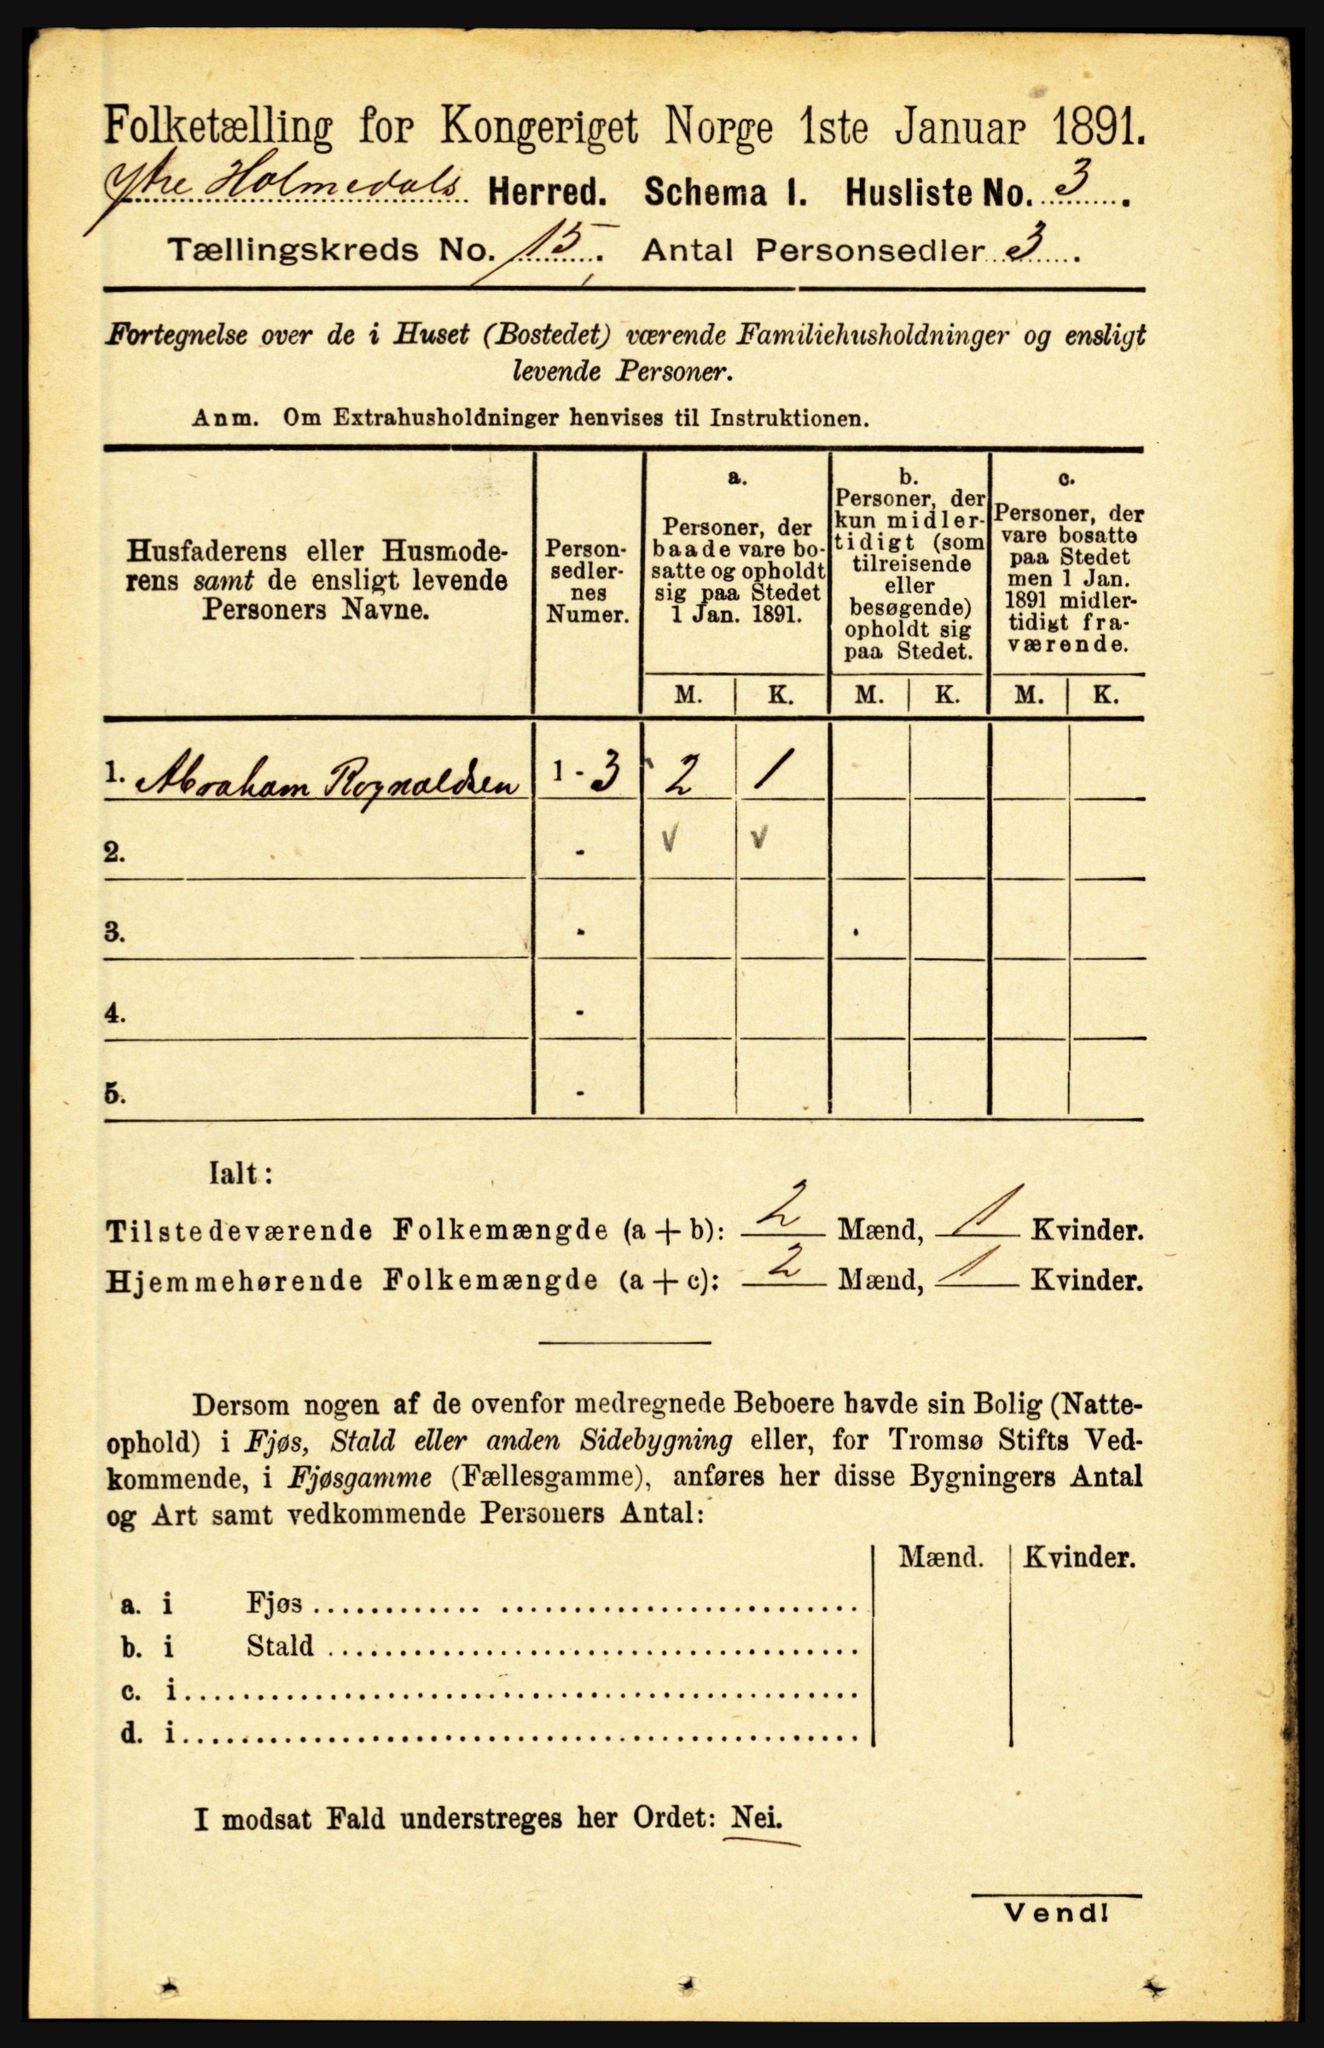 Folketælling for Kongeriget Norge 1ste Januar 1891.
Ytre Holmedals Herred. Schema I. Husliste No. 3.
Tællingskreds No. 15. Antal Personsedler 3.
Fortegnelse over de i Huset (Bostedet) værende Familiehusholdninger og ensligt
levende Personer.
Anm. Om Extrahusholdninger henvises til Instruktionen.
Husfaderens eller Husmode-
rens samt de ensligt levende
Personers Navne.
Person-
sedler-
nes
Numer.
a.
Personer, der
baade vare bo-
satte og opholdt
sig paa Stedet
1 Jan. 1891.
b.
Personer, der
kun midler-
tidigt (som
tilreisende
eller
besøgende)
opholdt sig
paa Stedet.
c.
Personer, der
vare bosatte
paa Stedet
men 1 Jan.
1891 midler-
tidigt fra-
værende.
M. K. M. K. M. K.
1. Abraham Rognaldsen 1 - 3 2 1
2. - v v
3. -
4. -
5. -
Ialt:
Tilstedeværende Folkemængde (a + b): 2 Mænd, 1 Kvinder.
Hjemmehørende Folkemængde (a + c): 2 Mænd, 1 Kvinder.
Dersom nogen af de ovenfor medregnede Beboere havde sin Bolig (Natte-
ophold) i Fjøs, Stald eller anden Sidebygning eller, for Tromsø Stifts Ved-
kommende, i Fjøsgamme (Fællesgamme), anføres her disse Bygningers Antal
og Art samt vedkommende Personers Antal:
Mænd. Kvinder.
a. i Fjøs
b. i Stald
c. i
d. i
I modsat Fald understreges her Ordet: Nei.
Vend!